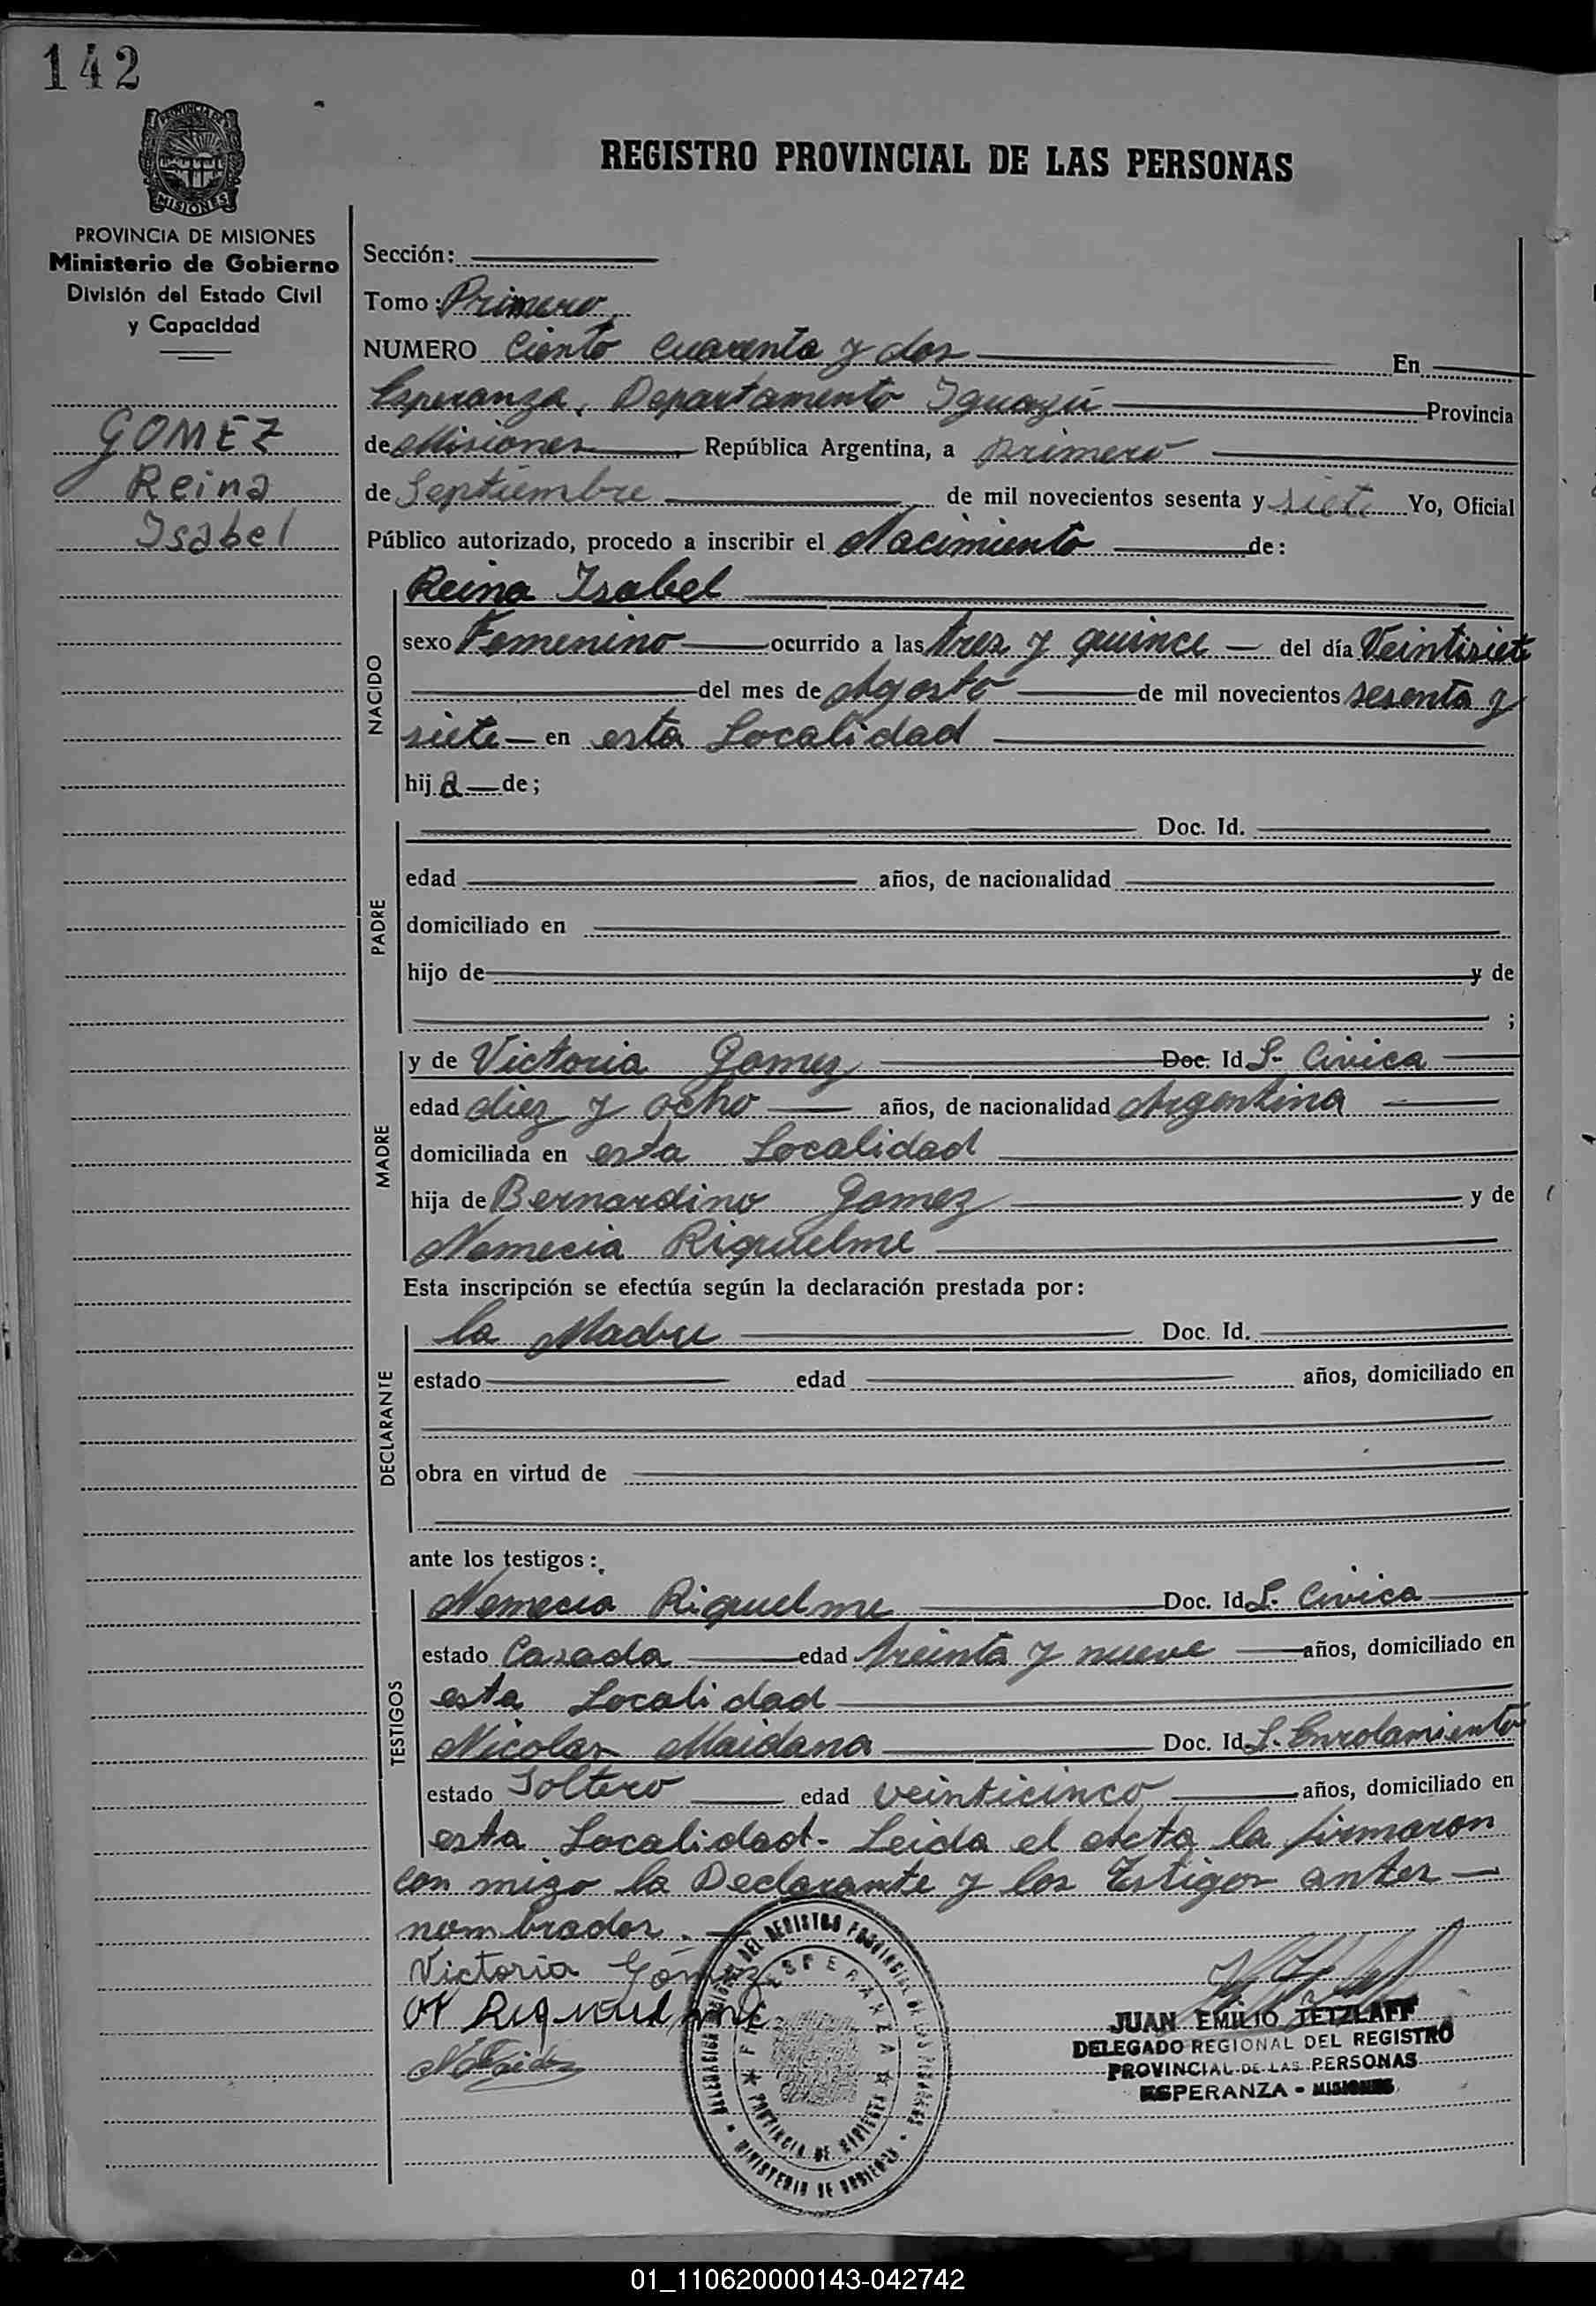 142
PROVINCIA DE
MISIONES
REGISTRO PROVINCIAL DE LAS PERSONAS
PROVINCIA DE MISIONES
Ministerio de Gobierno
División del Estado Civil
y Capacidad
GOMEZ
Reina
Isabel
Sección:
Tomo: Primero
NUMERO Ciento Cuarenta y dos En
Esperanza, Departamento Iguazú Provincia
de Misiones República Argentina, a primero
de Septiembre de mil novecientos sesenta y siete Yo, Oficial
Público autorizado, procedo a inscribir el Nacimiento de:
NACIDO
Reina Isabel
sexo Femenino ocurrido a las tres y quince del día Veintisiete
del mes de Agosto de mil novecientos sesenta y
siete en esta Localidad
hija de;
PADRE
Doc. Id.
edad años, de nacionalidad
domiciliado en
hijo de y de
;
MADRE
y de Victoria Gomez Doc. Id L. Civica
edad diez y ocho años, de nacionalidad Argentina
domiciliada en esta Localidad
hija de Bernardino Gomez y de
Nemecia Riquelme
Esta inscripción se efectúa según la declaración prestada por:
DECLARANTE
la Madre Doc. Id.
estado edad años, domiciliado en
obra en virtud de
ante los testigos:
TESTIGOS
Nemecia Riquelme Doc. Id L. Civica
estado Casada edad treinta y nueve años, domiciliado en
esta Localidad
Nicolas Maidana Doc. Id L. Enrolamiento
estado Soltero edad veinticinco años, domiciliado en
esta Localidad.- Leida el Acta la firmaron
con migo la Declarante y los Testigos antes
nombrados.
Victoria Gómez
N Riquelme
JUAN EMILIO TETZLAFF
DELEGADO REGIONAL DEL REGISTRO
PROVINCIAL DE LAS PERSONAS
ESPERANZA - MISIONES
DEL REGISTRO PROVINCIAL DE LAS PERSONAS
ESPERANZA
PROVINCIA DE MISIONES
MINISTERIO DE GOBIERNO
01_110620000143-042742